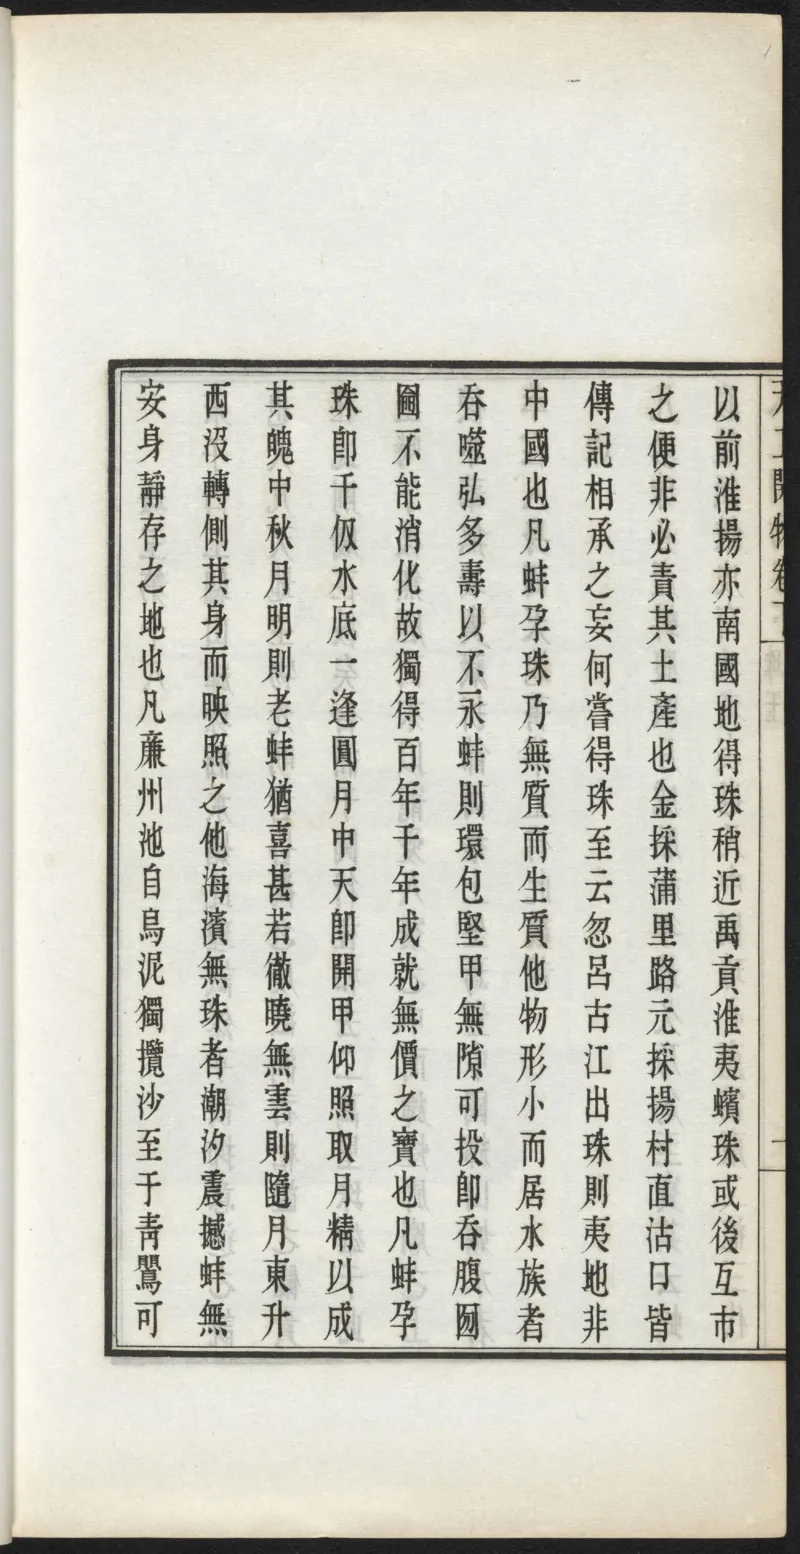 天工開物卷下
一
以前淮揚亦南國地得珠稍近禹貢淮夷蠙珠或後互市
之便非必責其土產也金採蒲里路元採揚村直沽口皆
傳記相承之妄何嘗得珠至云忽呂古江出珠則夷地非
中國也凡蚌孕珠乃無質而生質他物形小而居水族者
吞噬弘多壽以不永蚌則環包堅甲無隙可投卽吞腹囫
圇不能消化故獨得百年千年成就無價之寶也凡蚌孕
珠卽千仭水底一逢圓月中天卽開甲仰照取月精以成
其魄中秋月明則老蚌猶喜甚若徹曉無雲則隨月東升
西沒轉側其身而映照之他海濱無珠者潮汐震撼蚌無
安身靜存之地也凡廉州池自烏泥獨攬沙至于靑鸎可